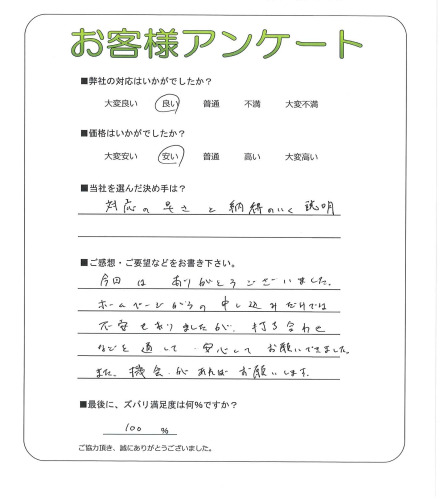 お客様アンケート
■弊社の対応はいかがでしたか?
大変良い 良い 普通 不満 大変不満
■価格はいかがでしたか?
大変安い 安い 普通 高い 大変高い
■当社を選んだ決め手は?
対応の早さと納得のいく説明
■ご感想・ご要望などをお書き下さい。
今回は ありがとうございました。
ホームページからの申し込みだけでは
不安もありましたが、打ち合わせ
などを通して 安心して お願いできました。
また、機会があればお願いします。
■最後に、ズバリ満足度は何%ですか?
100 %
ご協力頂き、誠にありがとうございました。